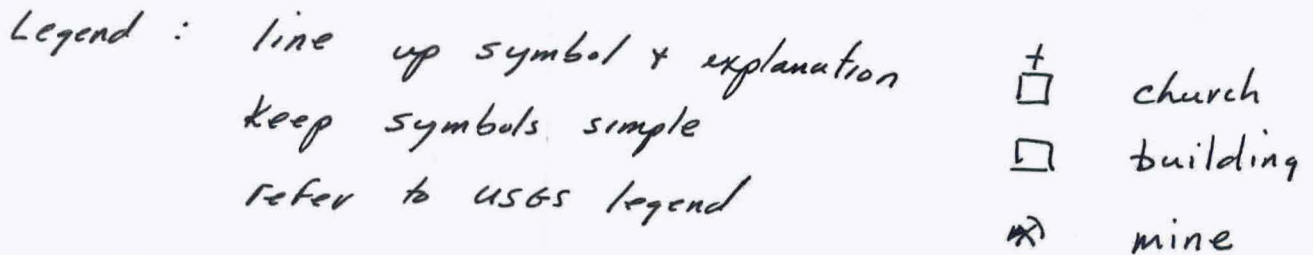 Legend : line up symbol & explanation
keep symbols simple
refer to USGS legend
church
building
mine